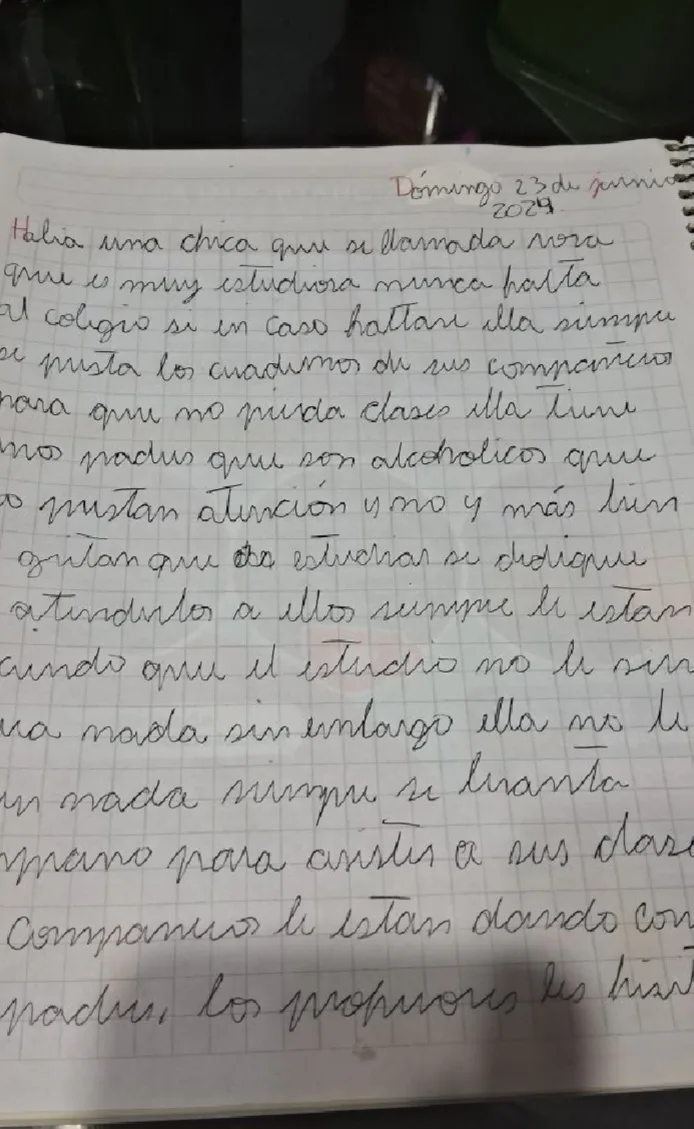 Domingo 23 de junio
2024.
Habia una chica que se llamada nora
que es muy estudiosa nunca falta
al colegio si en caso faltase ella siempre
se presta los cuadernos de sus compañeros
para que no pierda clases ella tiene
unos padres que son alcoholicos que
no prestan atención y no y más bien
gritan que estudiar se dedique
atenderlos a ellos siempre le estan
que el estudio no le
nada sin embargo ella no le
nada siempre se levanta
para asistir a sus
Companeros le estan dando
padres, los profesores les